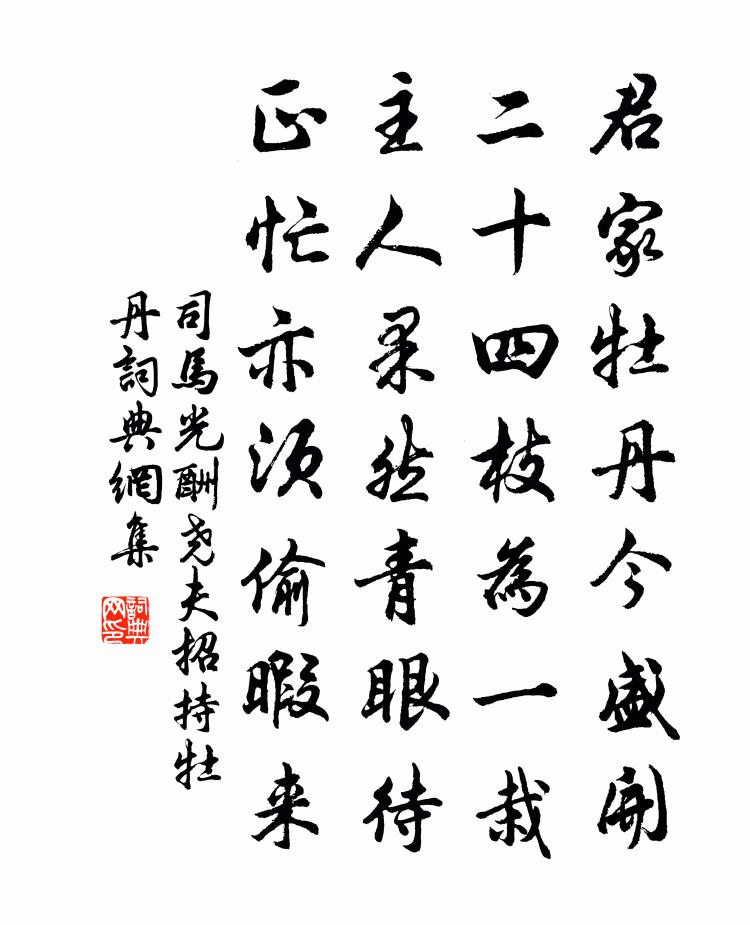 君家牡丹今盛開
二十四枝為一栽
主人果然青眼待
正忙亦須偷暇来
司馬光酬尧夫招持牡
丹詞典網集
詞典
网印